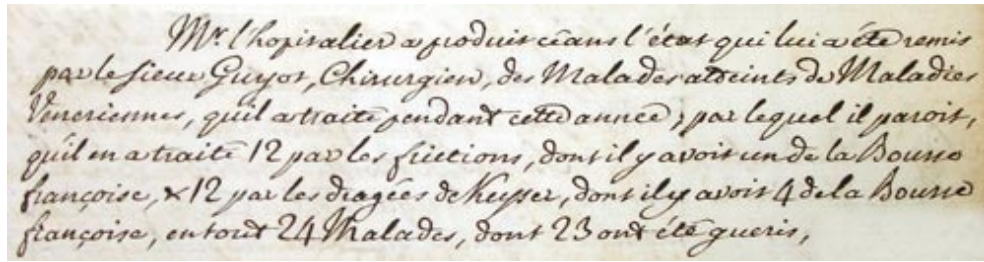 Mr. l'hopitalier a produit céans l'état qui lui a été remis
par le sieur Guyot, Chirurgien, des Malades atteints de Maladies
Veneriennes, qu'il a traité pendant cette année; par lequel il paroit,
qu'il en a traité 12 par les frictions, dont il y avoit un de la Bourse
françoise, & 12 par les dragées de Keyser, dont il y avoit 4 de la Bourse
françoise, en tout 24 Malades, dont 23 ont été gueris,